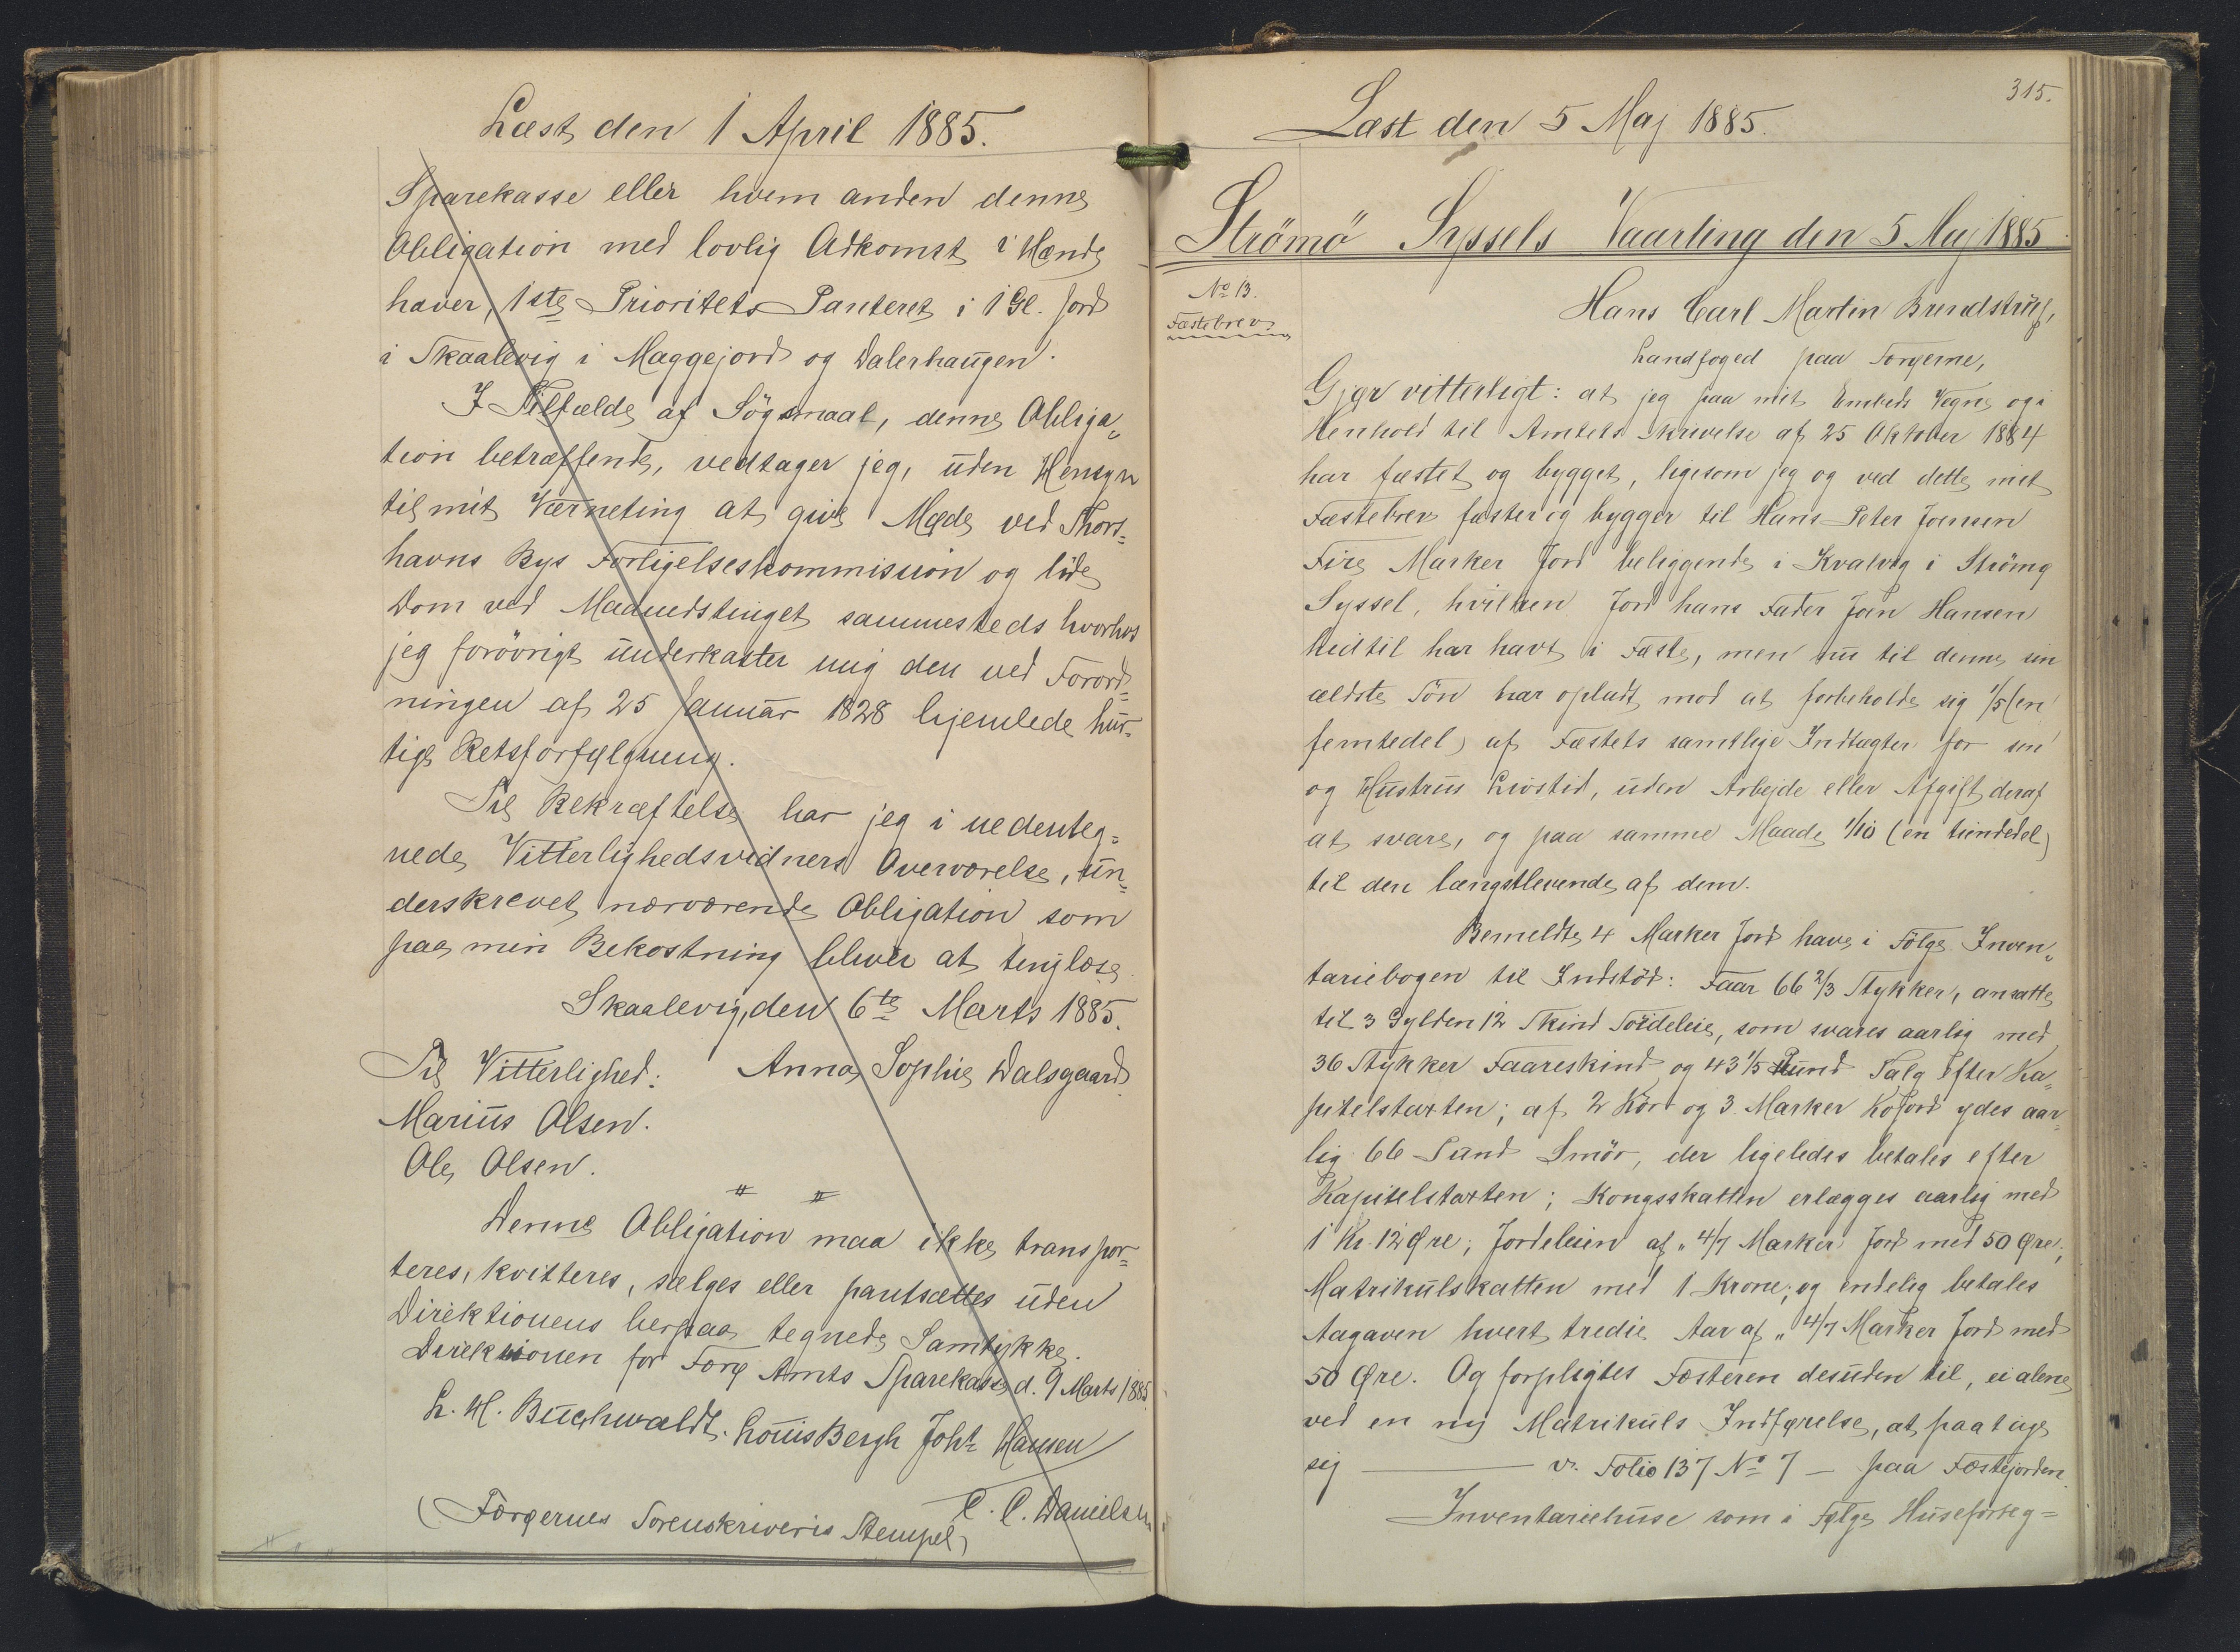 Læst den 1 April 1885.
Sparekasse eller hvem anden denne
Obligation med lovlig Adkomst i Hænde
haver, 1ste Prioritets Panteret i 1 Gl. Jord
i Skaalevig i Maggejord og Dalerhaugen.
I Tilfælde af Sögsmaal, denne Obliga„
tion betræffende, vedtager jeg, uden Hensyn
til mit Værneting at give Møde ved Thors=
havns Bys Forligelseskommission og lide
Dom ved Maanedstinget sammesteds hvorhos
jeg forövrigt underkaster mig den ved Forord=
ningen af 25 Januar 1828 hjemlede hur=
tige Retsforfølgning.
Til Bekræftelse har jeg i nedenteg=
nede Vitterlighedsvidners Overværelse, un„
derskrevet nærværende Obligation som
paa min Bekostning bliver at tinglæse.
Skaalevig, den 6te Marts 1885.
Til Vitterlighed: Anna Sophie Dalsgaard.
Marius Olsen.
Ole Olsen.
Denne Obligation maa ikke transpor=
teres, kvitteres, sælges eller pantsættes uden
Direktionens herpaa tegnede Samtykke.
Direktionen for Færø Amts Sparekasse, d. 9 Marts 1885.
L. H. Buchwaldt. Louis Bergh Joh: Hansen
C. C. Danielsen
(Færøernes Sorenskriveris Stempel)
315.
Læst den 5 Maj 1885.
Strömö Syssels Vaarting den 5 Maj 1885
No 13.
Fæstebrev.
Hans Carl Martin Brendstrup,
Landfoged paa Færøerne,
Gjør vitterligt: at jeg paa mit Embeds Vegne og i
Henhold til Amtets Skrivelse af 25 Oktober 1884
har fæstet og bygget, ligesom jeg og ved dette mit
Fæstebrev fæster og bygger til Hans Peter Joensen
Fire Marker Jord beliggende i Kvalvig i Strömø
Syssel, hvilken Jord hans Fader Joen Hansen
hidtil har havt i Fæste, men nu til denne sin
ældste Sön har opladt mod at forbeholde sig 1/5 (en
femtedel) af Fæstets samtlige Indtægter for sin
og Hustrus Livstid, uden Arbejde eller Afgift deraf
at svare, og paa samme Maade 1/10 (en tiendedel)
til den længstlevende af dem.
Bemeldte 4 Marker Jord have i Fölge Inven„
tariebogen til Indstöd: Faar 66 2/3 Stykker, ansatte
til 3 Gylden 12 Skind Söideleie, som svares aarlig med
36 Stykker Faareskind og 43 1/5 Pund Talg efter Ka„
pitelstaxten; af 2 Kör og 3 Marker Kojord ydes aar„
lig 66 Pund Smör, der ligeledes betales efter
Kapitelstaxten; Kongsskatten erlægges aarlig med
1 Kr. 12 Øre; Jordeleien af „ 4/7 Marker Jord med 50 Øre;
Matrikulskatten med 1 Krone; og endelig betales
Aagaven hvert tredie Aar af „ 4/7 Marker Jord med
50 Øre. Og forpligtes Fæsteren desuden til, ei alene
ved en ny Matrikuls Indførelse, at paatage
sig — v. Folio 137 No 7 — paa Fæstejorden.
Inventariehuse som i Følge Husefor­teg=